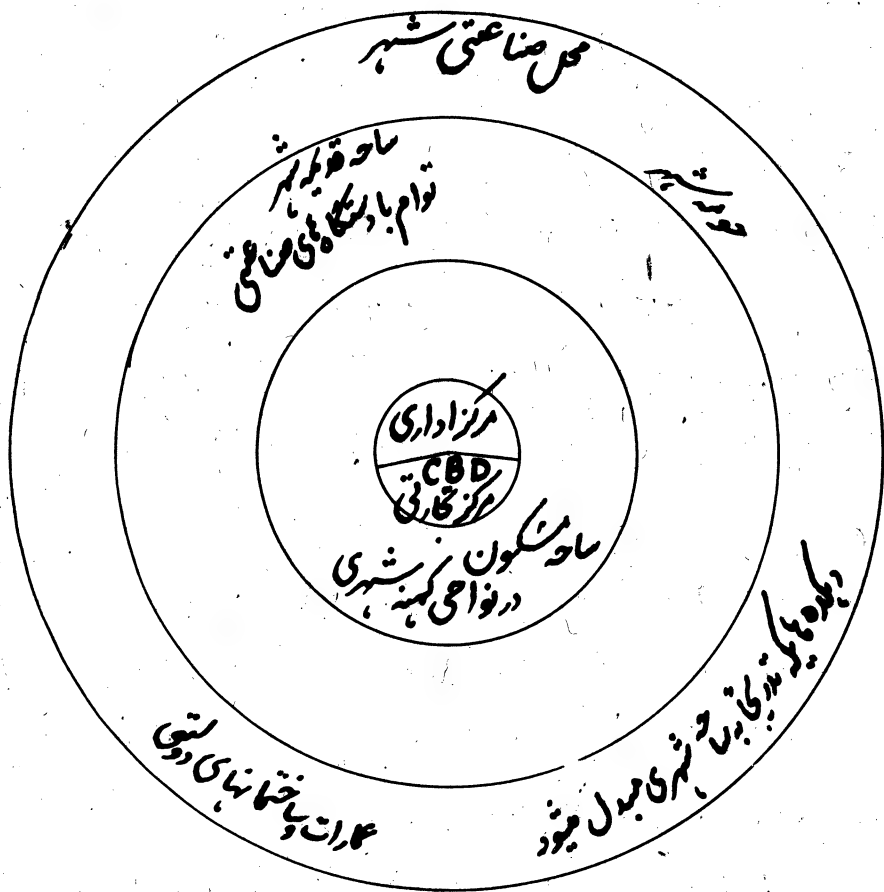 محل صناعتی شهر
ساحه شهر
توام با دستگاه‌های صناعتی
مرکز اداری
CBD
مرکز تجارتی
ساحه مسکون
در نواحی کهنه شهری
دهکده هایکه تدریجا به ساحه شهری مبدل میشود
عمارات و ساختمانهای دولتی